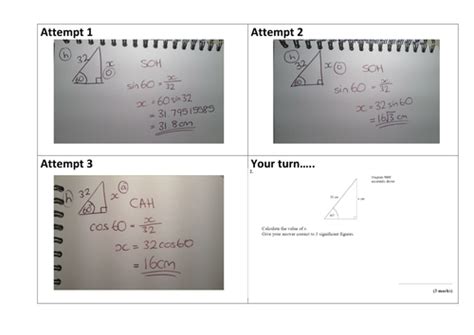 Attempt 1
h
32
x
O
60
SOH
sin60 = x/32
x = 60sin32
= 31.79515585
= 31.8cm
Attempt 2
h
32
x
O
60
SOH
sin60 = x/32
x = 32sin60
= 16√3 cm
Attempt 3
h
32
x
a
60
CAH
cos60 = x/32
x = 32cos60
= 16cm
Your turn.....
1.
Calculate the value of x.
Give your answer correct to 3 significant figures.
(3 marks)